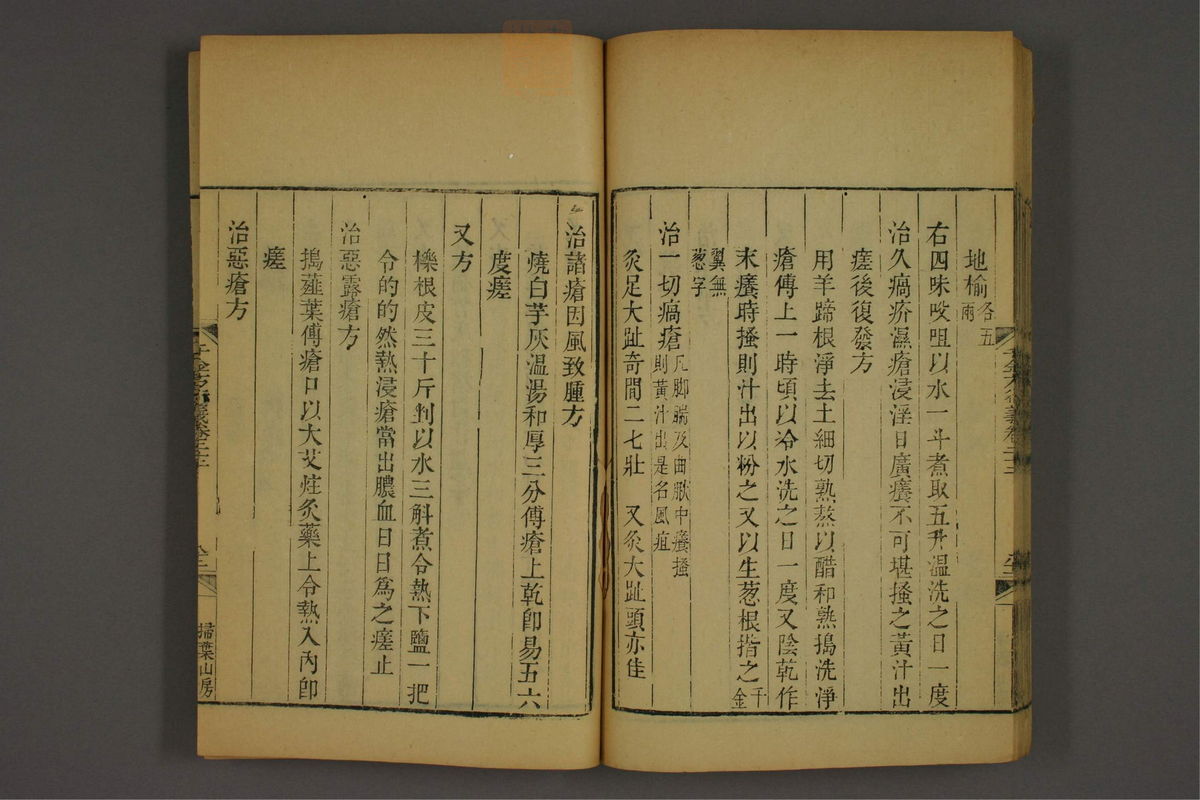 地榆各五兩
右四味㕮咀以水一斗煮取五升溫洗之日一度
治久瘑疥濕瘡浸淫日廣癢不可堪搔之黃汁出
瘥後復發方
用羊蹄根淨去土細切熟熬以醋和熟搗洗淨
瘡傅上一時頃以冷水洗之日一度又陰乾作
末癢時搔則汁出以粉之又以生蔥根指之千金
翼無蔥字
治一切瘑瘡凡脚腨及曲䐐中癢搔則黃汁出是名風疽
灸足大趾奇間二七壯 又灸大趾頭亦佳
治諸瘡因風致腫方
燒白芋灰溫湯和厚三分傅瘡上乾即易五六
度瘥
又方
櫟根皮三十斤剉以水三斛煮令熱下鹽一把
令的的然熱浸瘡當出膿血日日為之瘥止
治惡露瘡方
搗薤葉傅瘡口以大艾炷灸藥上令熱入內即
瘥
治惡瘡方
千金方衍義卷二十二
掃葉山房